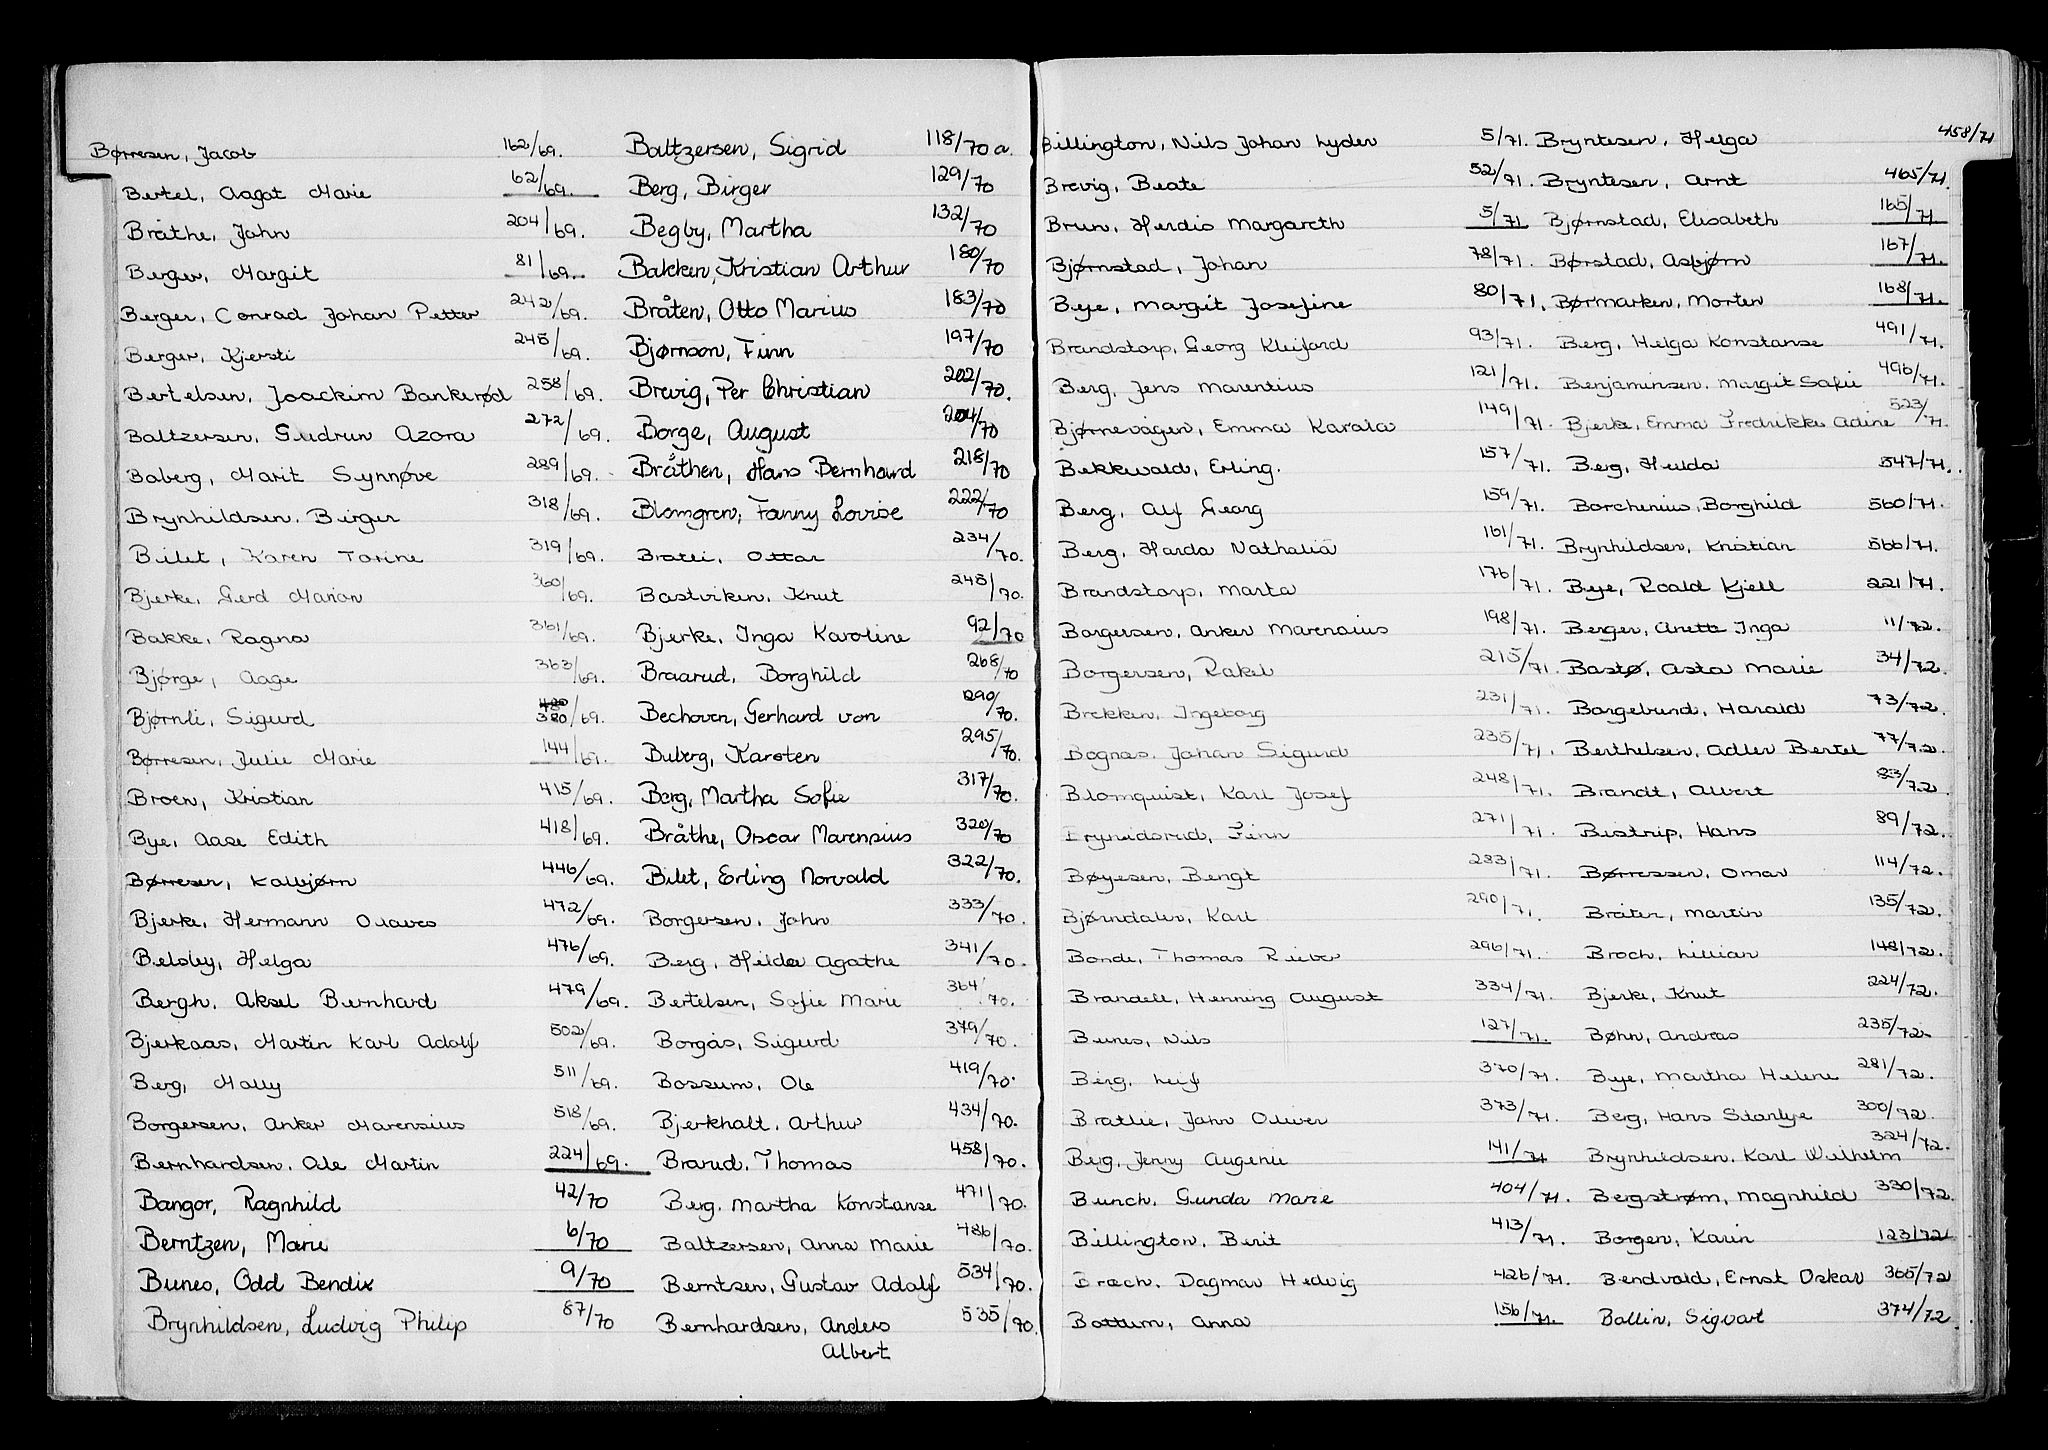 Børresen, Jacob 162/69.
Bertel, Aagot Marie 62/69.
Bråthe, John 204/69.
Berger, Margit 81/69.
Berger, Conrad Johan Petter 242/69.
Berger, Kjersti 245/69.
Bertelsen, Joackim Bankerød 258/69.
Baltzersen, Gudrun Azora 272/69.
Boberg, Marit Synnøve 289/69.
Brynhildsen, Birger 318/69.
Bilet, Karen Torine 319/69.
Bjerke, Gerd Marion 360/69.
Bakke, Ragna 361/69.
Bjørge, Aage 363/69.
Bjørnli, Sigurd 380/69.
Børresen, Julie Marie 144/69.
Broen, Kristian 415/69.
Bye, Aase Edith 418/69.
Børresen, Kolbjørn 446/69.
Bjerke, Hermann Olaves 472/69.
Belsby, Helga 476/69.
Bergh, Aksel Bernhard 479/69.
Bjerkaas, Martin Karl Adolf 502/69.
Berg, Molly 511/69.
Borgersen, Anker Marensius 518/69.
Bernhardsen, Ole Martin 224/69.
Bangor, Ragnhild 42/70
Berntzen, Marie 6/70
Bunes, Odd Bendix 9/70
Brynhildsen, Ludvig Philip 87/70
Baltzersen, Sigrid 118/70 a.
Berg, Birger 129/70
Begby, Martha 132/70
Bakken, Kristian Arthur 180/70
Bråten, Otto Marius 183/70
Bjørnson, Finn 197/70
Brevig, Per Christian 202/70.
Borge, August 204/70
Bråthen, Hans Bernhard 218/70
Blomgren, Fanny Lovise 222/70
Bratli, Ottar 234/70.
Bastviken, Knut 245/70.
Bjerke, Inga Karoline 92/70
Braarud, Borghild 268/70
Bechoven, Gerhard von 290/70.
Buberg, Karsten 295/70.
Berg, Martha Sofie 317/70.
Bråthe, Oscar Marensius 320/70
Bilet, Erling Norvald 322/70.
Borgersen, John 333/70.
Berg, Hilda Agathe 341/70.
Bertelsen, Sofie Marie 364/70.
Borgås, Sigurd 379/70.
Bossum, Ole 419/70.
Bjerkholt, Arthur 434/70.
Brarud, Thomas 458/70.
Berg, Martha Konstanse 471/70.
Baltzersen, Anna Marie 486/70.
Berntsen, Gustav Adolf 534/70.
Bernhardsen, Anders 535/70.
Albert
Billington, Nils Johan Lyder 5/71.
Brevig, Beate 52/71.
Brun, Herdis Margareth 5/71
Bjørnstad, Johan 78/71.
Bye, Margit Josefine 80/71.
Brandstorp, Georg Kleiford 93/71.
Berg, Jens Marentius 121/71.
Bjørnevågen, Emma Karola 149/71.
Bekkevold, Erling. 157/71.
Berg, Alf Georg 159/71.
Berg, Harda Nathalia 161/71.
Brandstorp, Marta 176/71.
Borgersen, Anker Marensius 198/71.
Borgersen, Rakel 215/71.
Brekken, Ingeborg 231/71.
Bognæs, Johan Sigurd 235/71.
Blomquist, Karl Josef 248/71.
Finn 271/71.
Bøyesen, Bengt 283/71.
Bjørndalen, Karl 290/71.
Bonde, Thomas Rieber 296/71.
Brandell, Henning August 334/71.
Bunes, Nils 127/71.
Berg, Leif 370/71.
Bratlie, John Oliver 373/71.
Berg, Jenny Augenie 141/71
Bunch, Gunda Marie 404/71.
Billington, Berit 413/71.
Bræch, Dagmar Hedvig 426/71.
Bottum, Anna 156/71.
Bryntesen, Helga 458/71
Bryntesen, Arnt 465/71.
Bjørnstad, Elisabeth 165/71.
Børstad, Asbjørn 167/71.
Børmarken, Morten 168/71.
Berg, Helga Konstanse 491/71.
Benjaminsen, Margit Sofie 496/71.
Bjerke, Emma Fredrikke Adine 523/71.
Berg, Hulda 547/71.
Borchenius, Borghild 560/71.
Brynhildsen, Kristian 566/71.
Bye, Roald Kjell 221/71.
Berger, Anette Inga 11/72.
Bastø, Asta Marie 34/72.
Borgebund, Harald 73/72.
Berthelsen, Adler Bertel 77/72.
Brandt, Albert 83/72
Bistrip, Hans 89/72.
Børressen, Omar 114/72.
Bråten, Martin 135/72.
Broch, Lillian 148/72.
Bjerke, Knut 224/72.
Bøhn, Andreas 235/72.
Bye, Martha Helene 281/72.
Berg, Hans Stanlye 300/72.
Brynhildsen, Karl Wilhelm 324/72.
Bergstrøm, Magnhild 330/72.
Borgen, Karin 123/72
Bendvold, Ernst Oskar 365/72
Ballin, Sigvart 374/72.